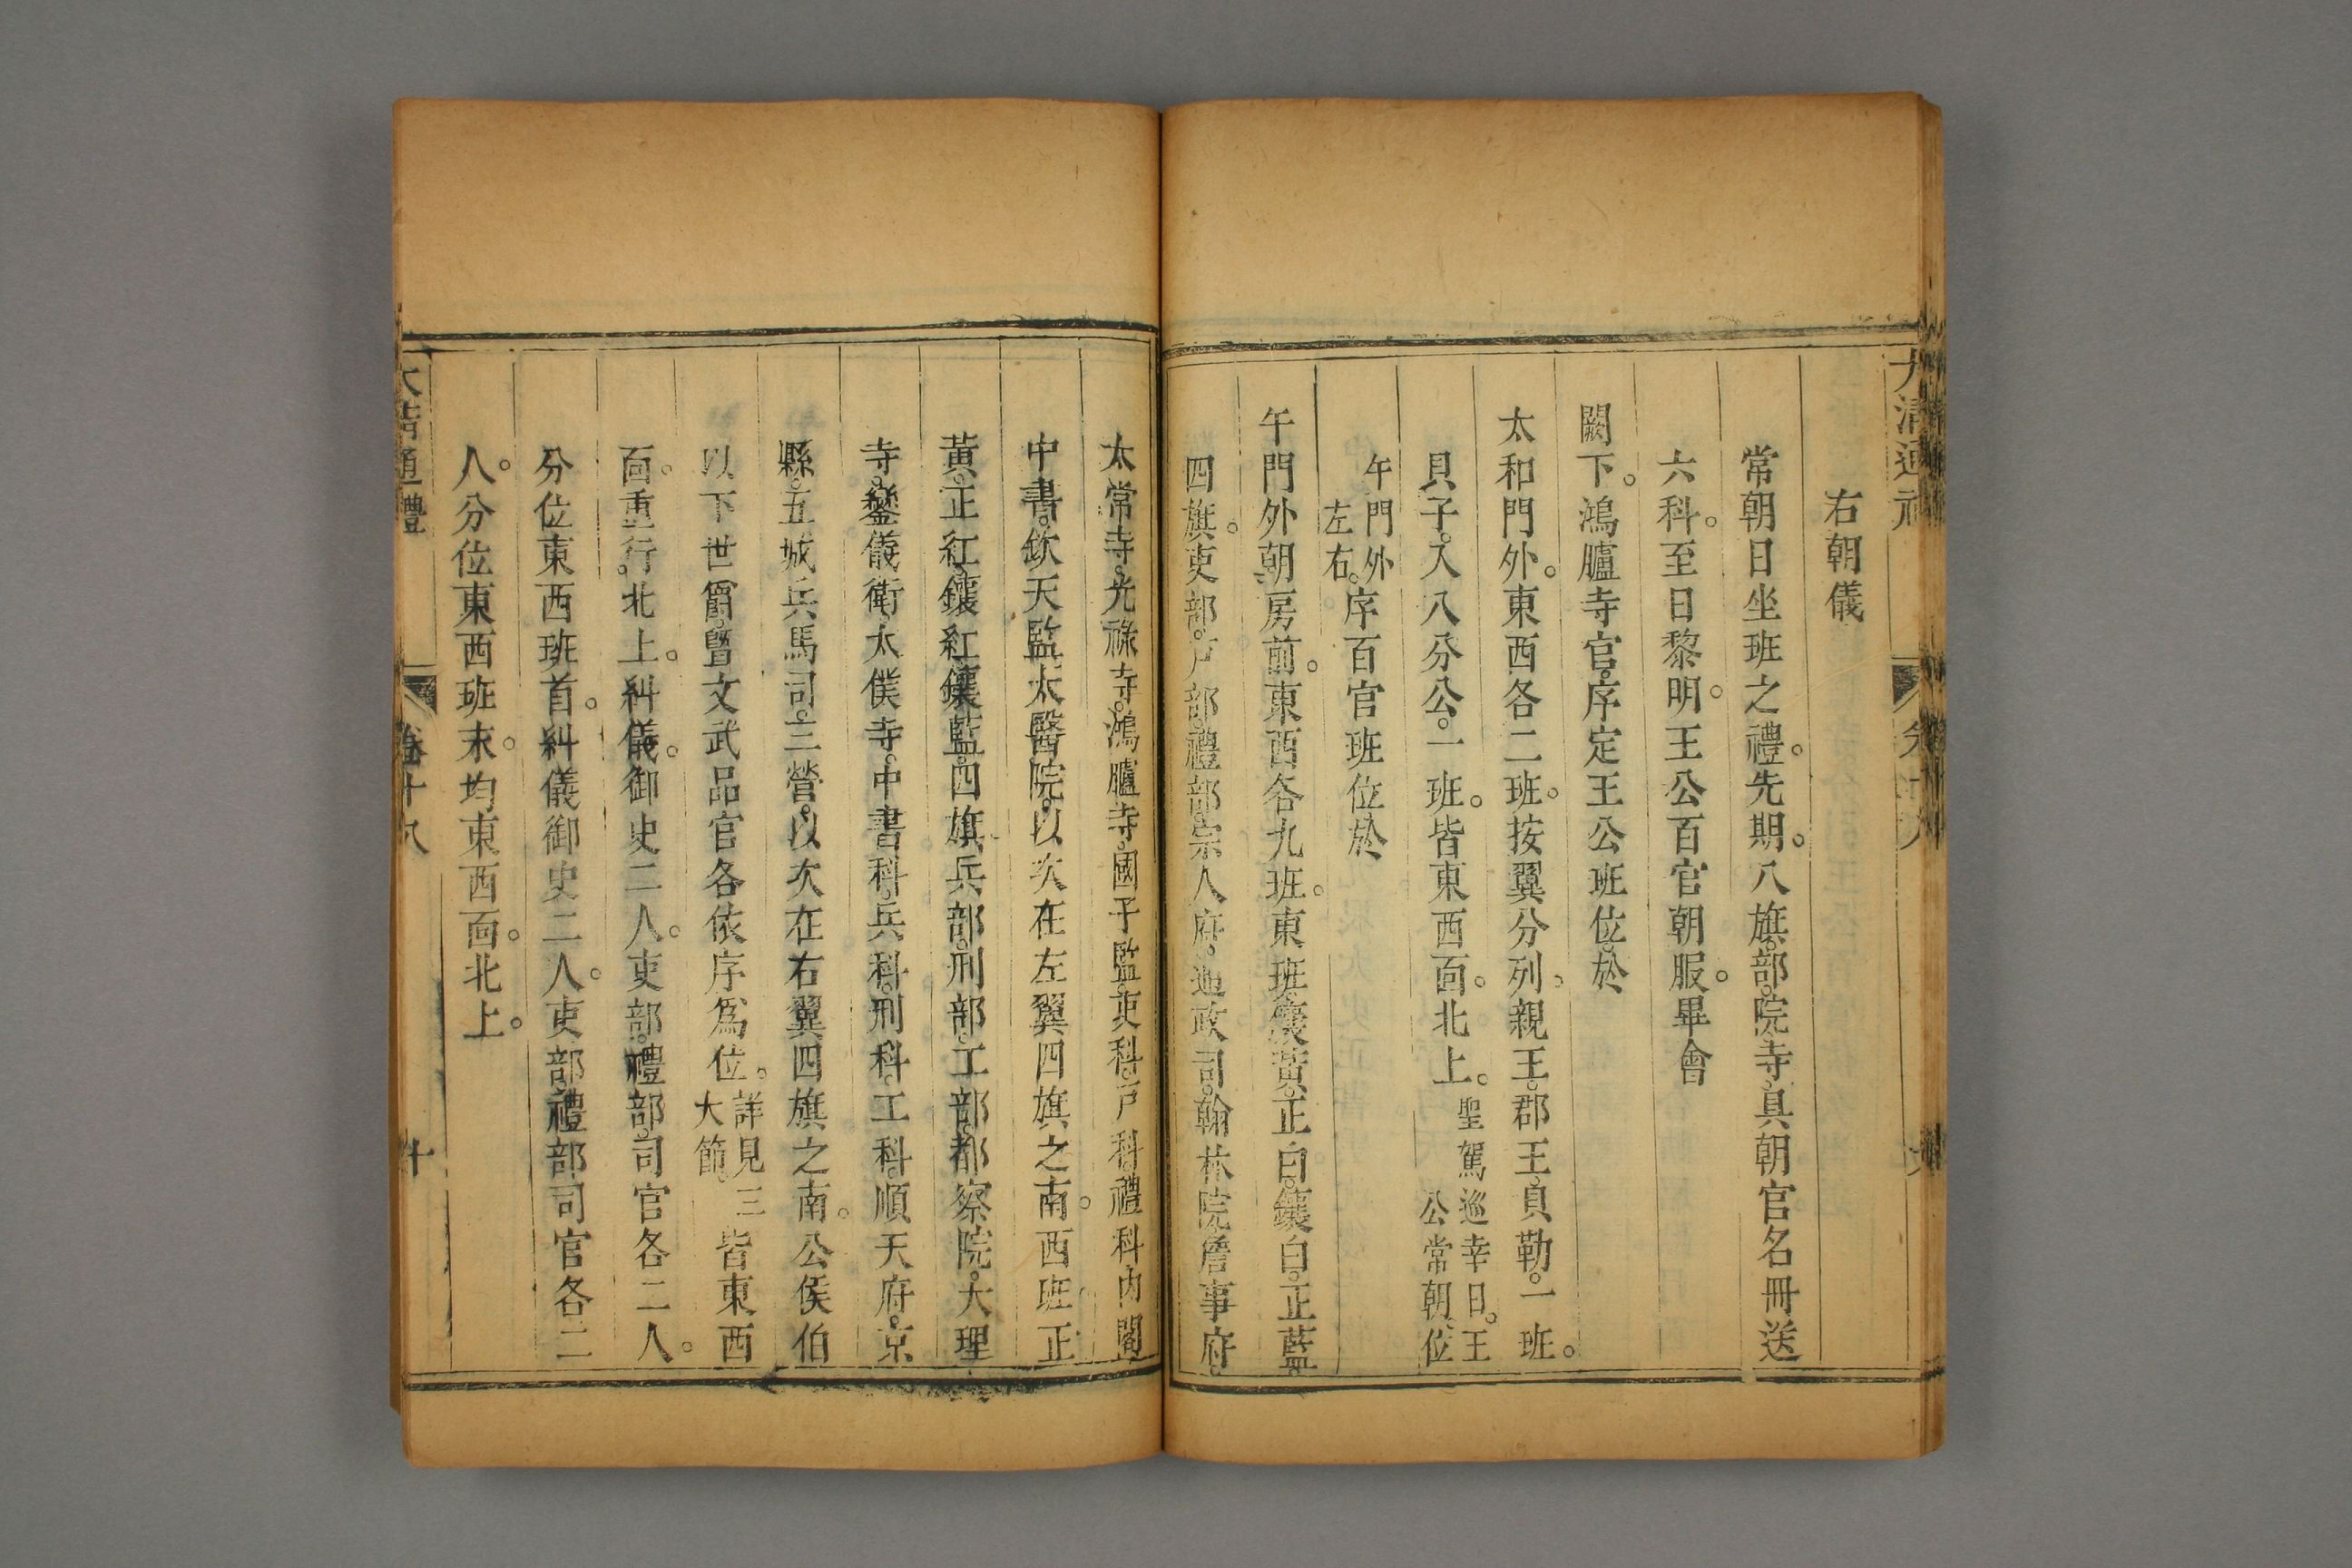 大清通禮
右朝儀
常朝日坐班之禮。先期。八旗。部。院。寺。具朝官名冊送
六科。至日黎明。王公百官朝服。畢會
闕下。鴻臚寺官。序定王公班位。於
太和門外。東西各二班。按翼分列。親王。郡王。貝勒。一班。
貝子。入八分公。一班。皆東西面。北上。聖駕巡幸日。王公常朝。位
午門外左右。序百官班位於
午門外朝房前。東西各九班。東班。鑲黃。正白。鑲白。正藍。
四旗。吏部。戶部。禮部。宗人府。通政司。翰林院。詹事府。
太常寺。光祿寺。鴻臚寺。國子監。吏科。戶科。禮科。內閣
中書。欽天監。太醫院。以次在左翼四旗之南。西班。正
黃。正紅。鑲紅。鑲藍。四旗。兵部。刑部。工部。都察院。大理
寺。鑾儀衛。太僕寺。中書科。兵科。刑科。工科。順天府。京
縣。五城兵馬司。三營。以次在右翼四旗之南。公侯伯
以下世爵。曁文武品官各依序爲位。詳見三大節。皆東西
面。重行。北上。糾儀。御史二人。吏部。禮部。司官各二人。
分位東西班首。糾儀御史二人。吏部禮部司官各二
人。分位東西班末。均東西面。北上。
大清通禮
卷十八